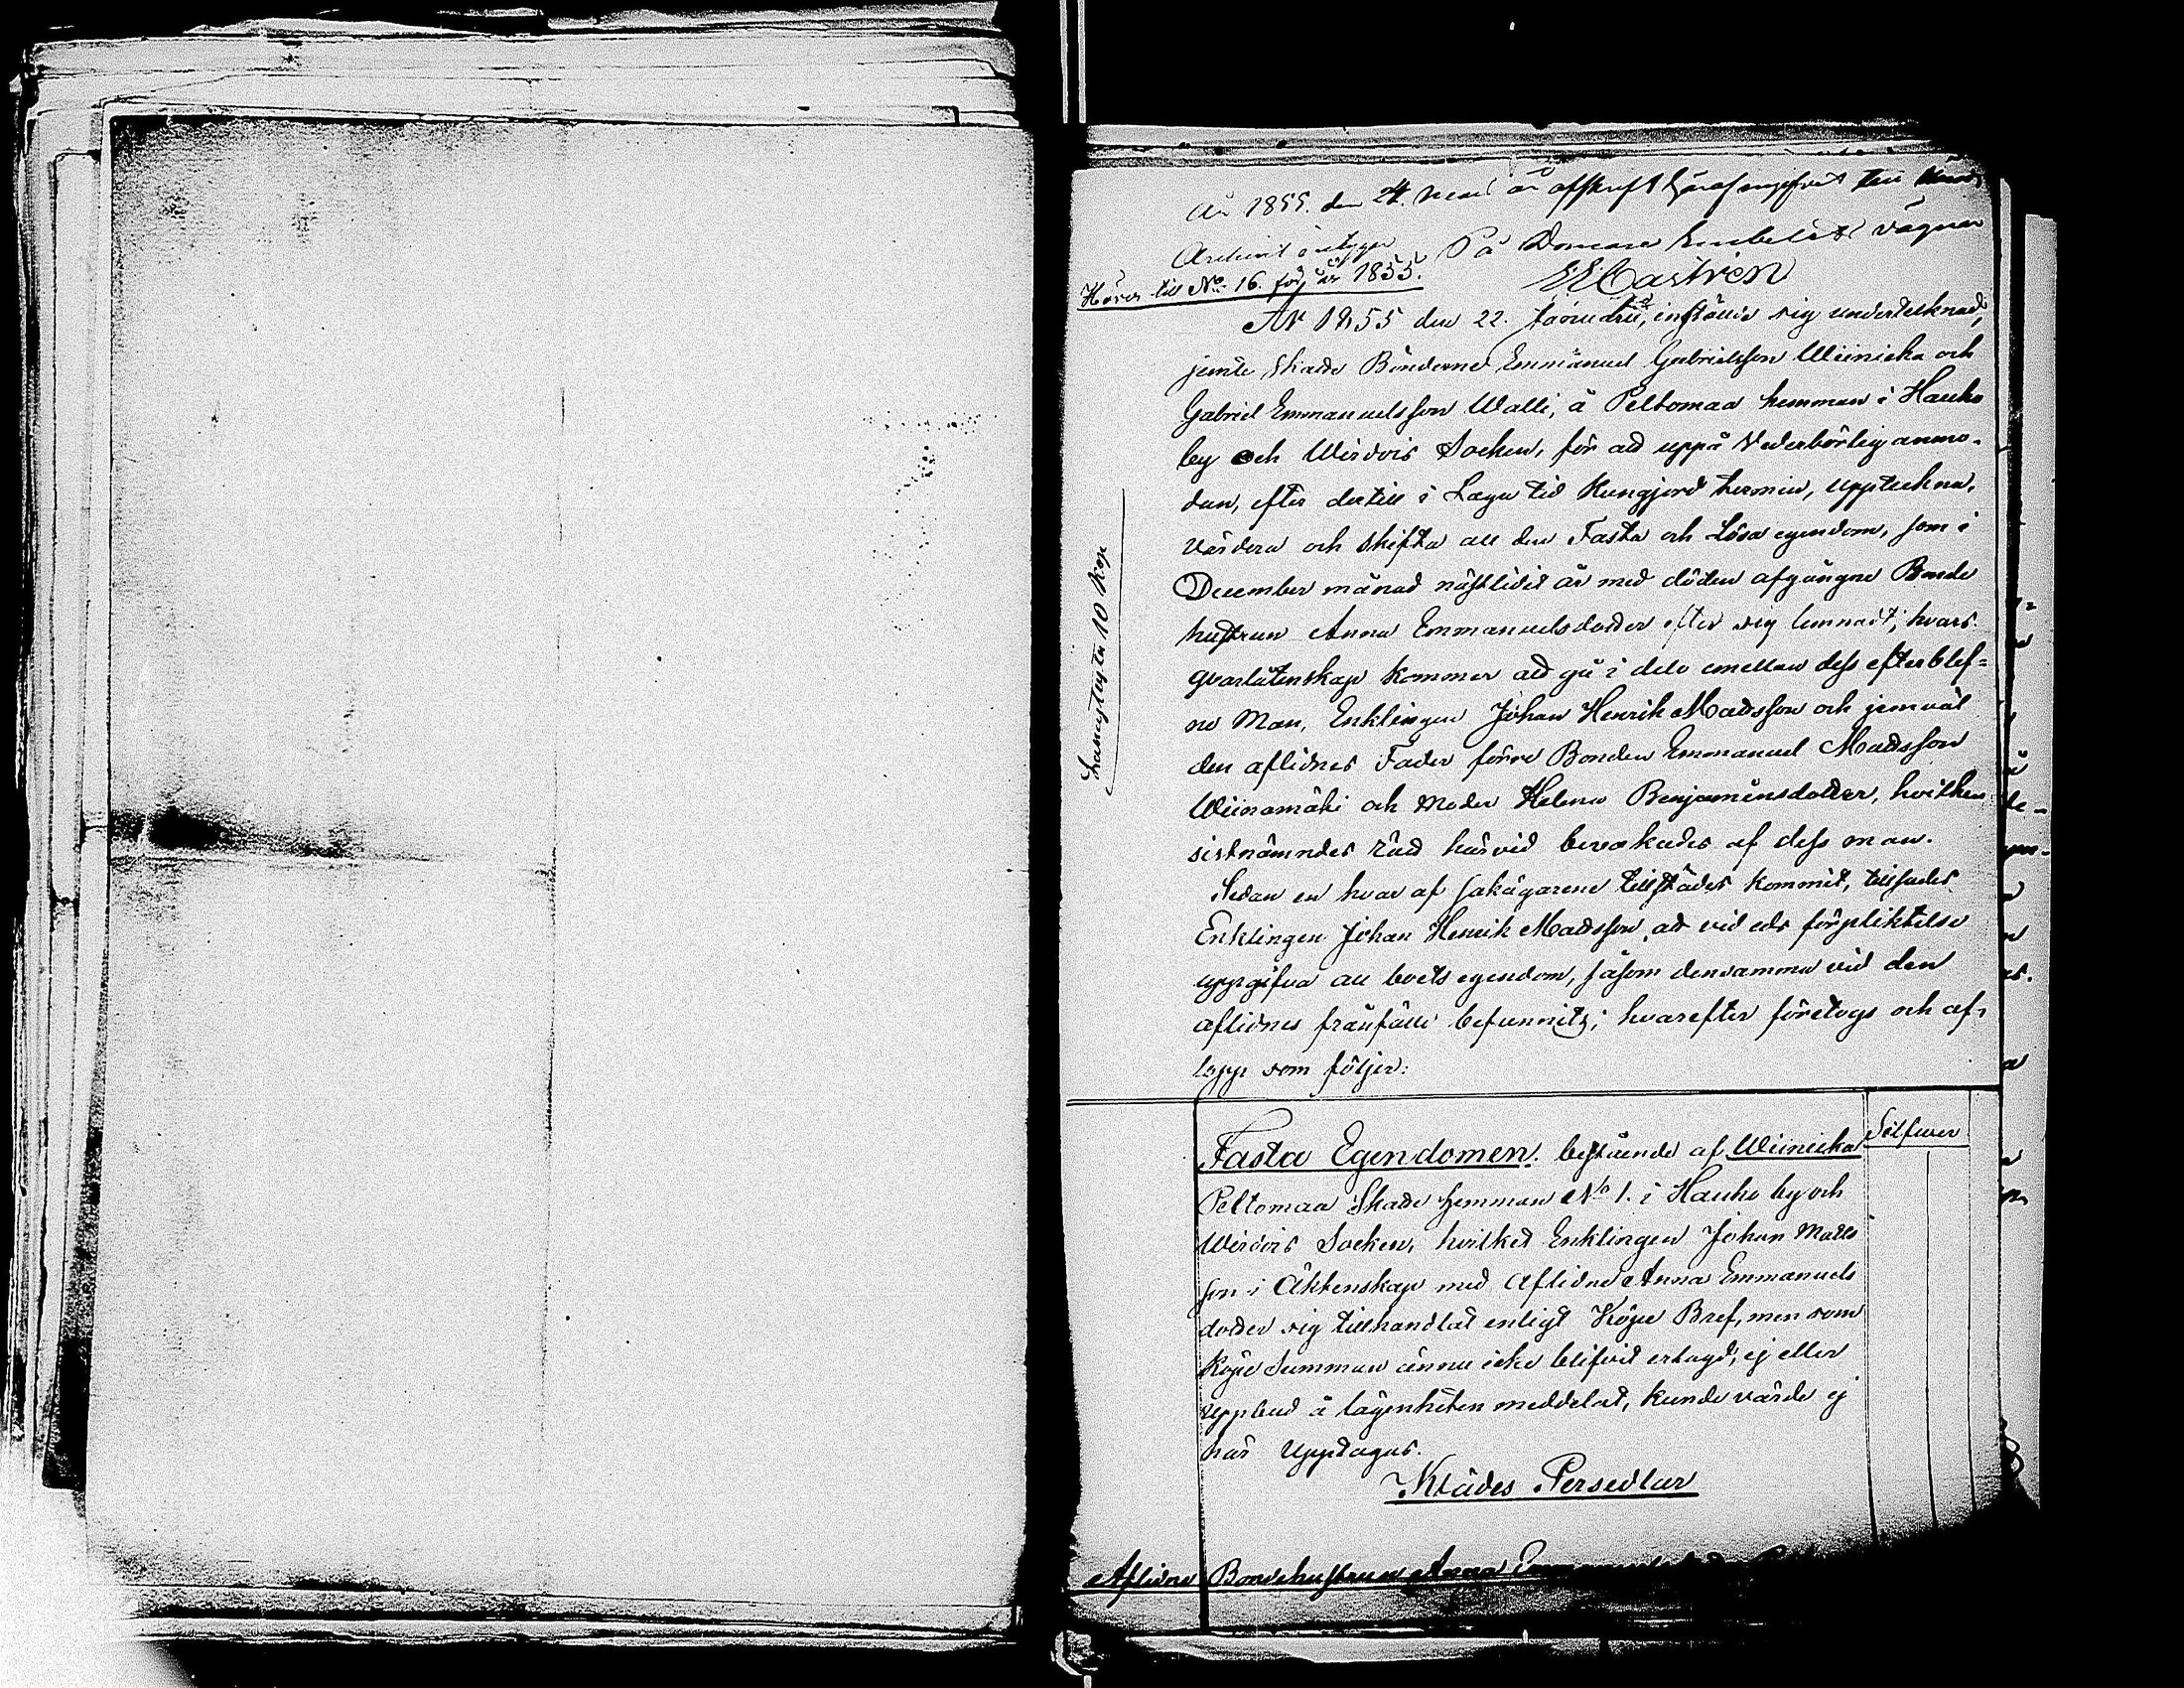 År 1855. den 24. Mars är afskrift häraf
På Domare Embetets vägnar
Hörer till No 16. för år 1855.
Castrén
År 1855 den 22. Januarii, inställde sig undertecknad,
jemte Skatte Bönderne Emmanuel Gabrielsson Wiinicka och
Gabriel Emmanuelsson Walli, å Peltomaa hemman i Hauho
by och Wirdois Socken, för att uppå Vederbörlig anmo-
dan, efter dertill i Laga tid Kungjord termin, uppteckna,
värdera och skifta all den Fasta och Lösa egendom, som i
December månad nästlidit år med döden afgångne Bonde
hustrun Anna Emmanuelsdotter efter sig lemnadt; hvars
qvarlåtenskap kommer att gå i delo emellan dess efterblef=
ne Man, Enklingen Johan Henrik Mattsson och jemväl
den aflidnes Fader förre Bonden Emmanuel Mattsson
Wiinamäki och Moder Helena Benjaminsdotter, hvilken
sistnämndes rätt härvid bevakades af dess man.
Sedan en hvar af sakägarene tillstädes kommit, tillsades
Enklingen Johan Henrik Mattsson, att vid eds förpliktelse
uppgifva all boets egendom, såsom densamma vid den
aflidnes frånfälle befunnits; hvarefter företogs och af-
lopp som följer:
Lösungs 10 Kop
Fasta Egendomen. bestående af Wiinicka
Silfver
Peltomaa Skatte Hemman No 1. i Hauho by och
Wirdois Socken, hvilket Enklingen Johan Matts
son i Äktenskap med Aflidne Anna Emmanuels
dotter sig tillhandlat enligt Köpe Bref, men som
Köpe Summan ännu icke blifvit erlagd, ej eller
Uppbud å lägenheten meddelat, kunde värde ej
här Upptagas.
Klädes Persedlar
Aflidne Bondehustrun Anna